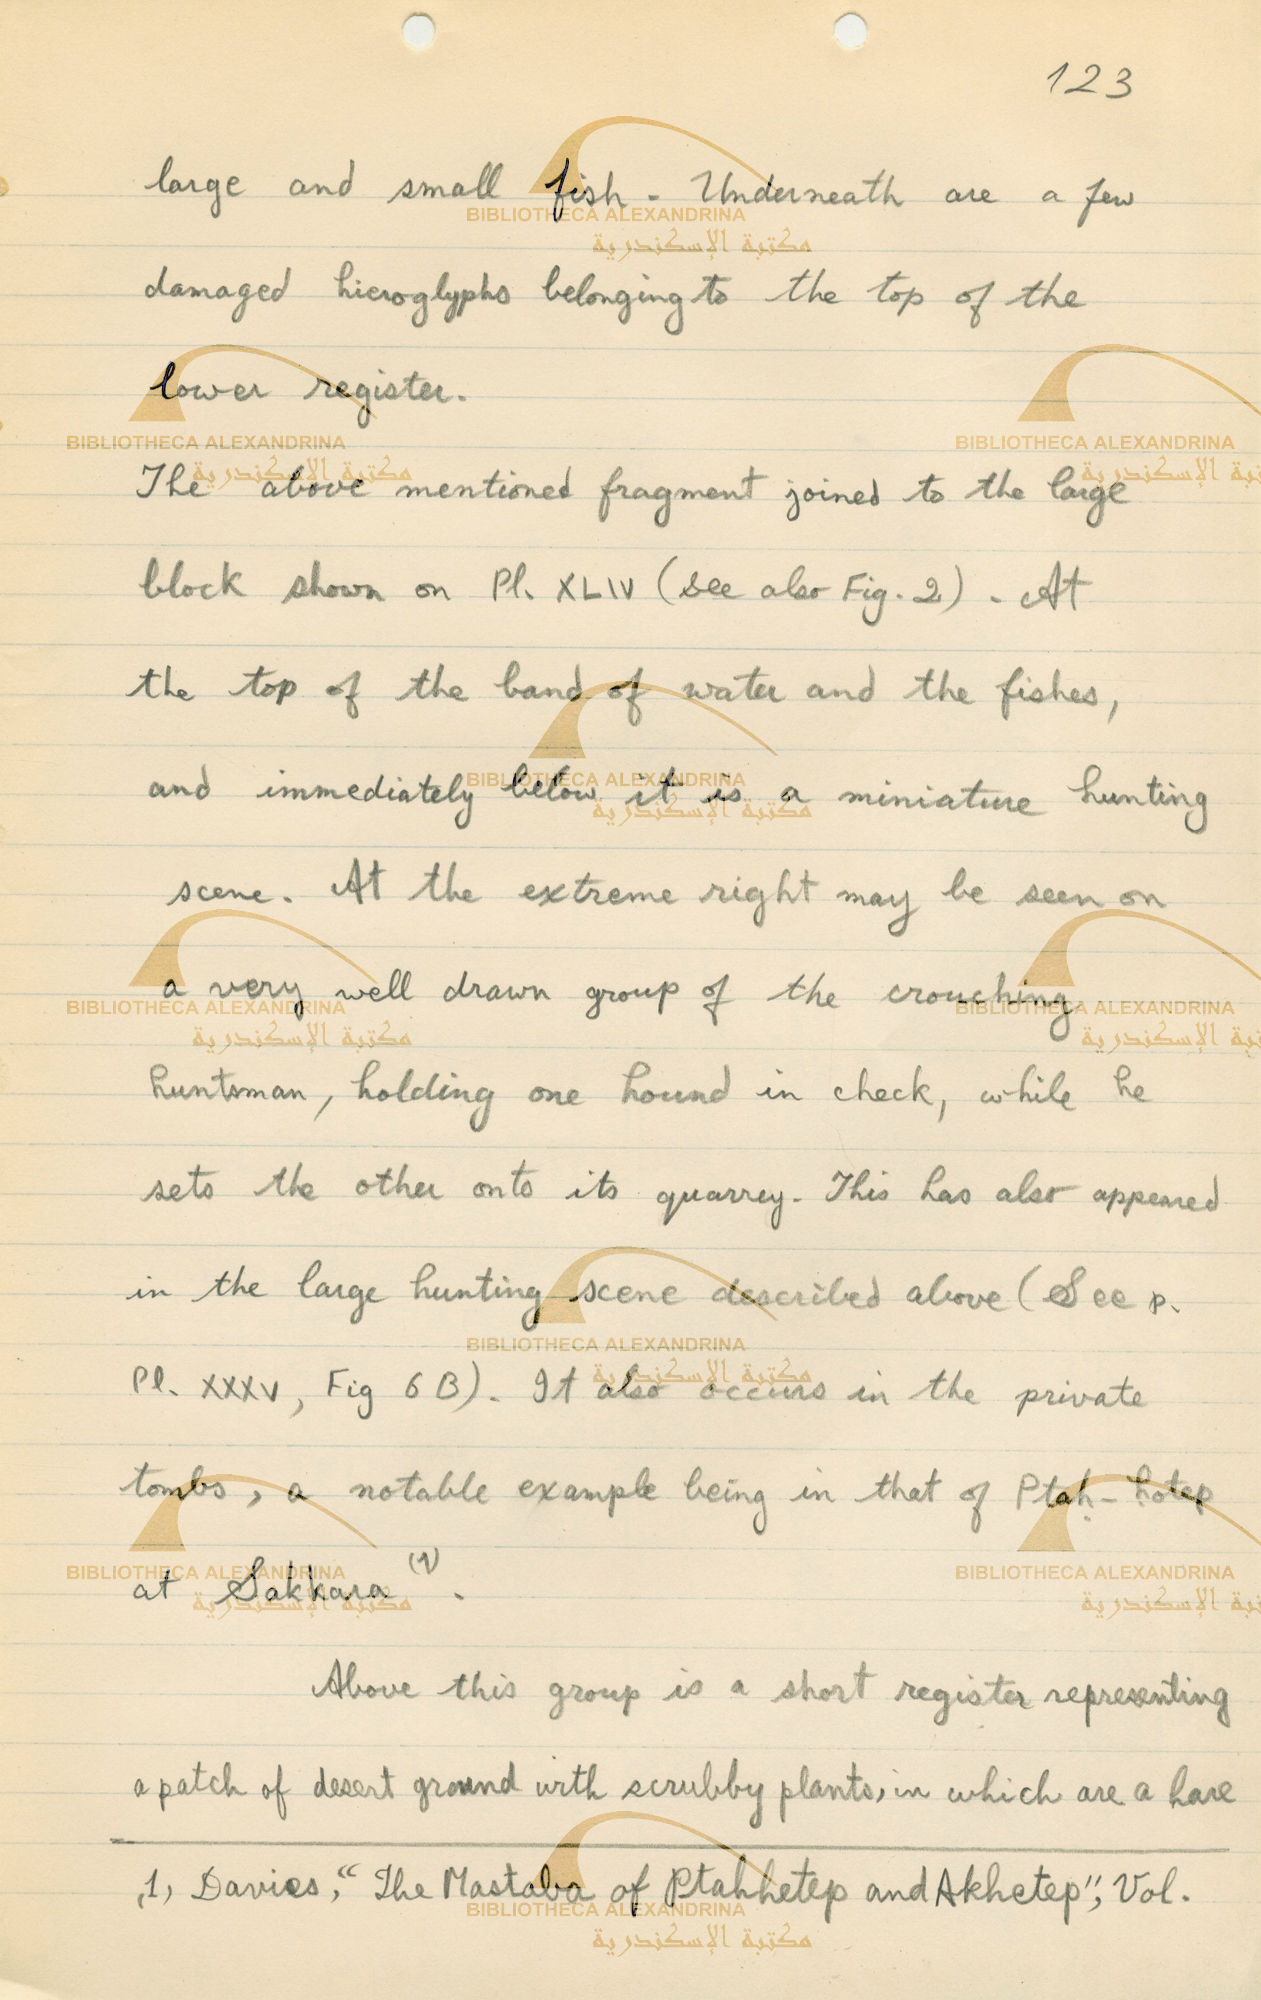 123
large and small fish - Underneath are a few
damaged hieroglyphs belonging to the top of the
lower register.
The above mentioned fragment joined to the large
block shown on Pl. XLIV (see also Fig. 2) . At
the top of the band of water and the fishes,
and immediately below it is a miniature hunting
scene. At the extreme right may be seen on
a very well drawn group of the crouching
huntsman, holding one hound in check, while he
sets the other onto its quarrey. This has also appeared
in the large hunting scene described above (See p.
Pl. XXXV, Fig 6 B). It also occurs in the private
tombs, a notable example being in that of Ptah-hotep
at Sakkara (1).
Above this group is a short register representing
a patch of desert ground with scrubby plants, in which are a hare
(1) Davies, "The Mastaba of Ptahhetep and Akhetep", Vol.
BIBLIOTHECA ALEXANDRINA
مكتبة الإسكندرية